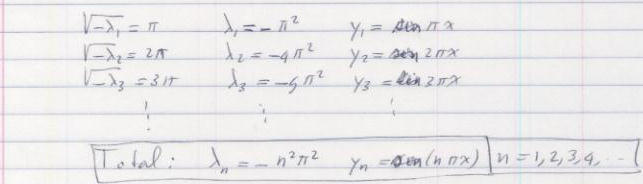 √-λ₁ = π λ₁ = -π² y₁ = sen πx
√-λ₂ = 2π λ₂ = -4π² y₂ = sen 2πx
√-λ₃ = 3π λ₃ = -9π² y₃ = sen 3πx
⋮ ⋮ ⋮
Total: λₙ = -n²π² yₙ = sen(nπx) n = 1, 2, 3, 4, ...